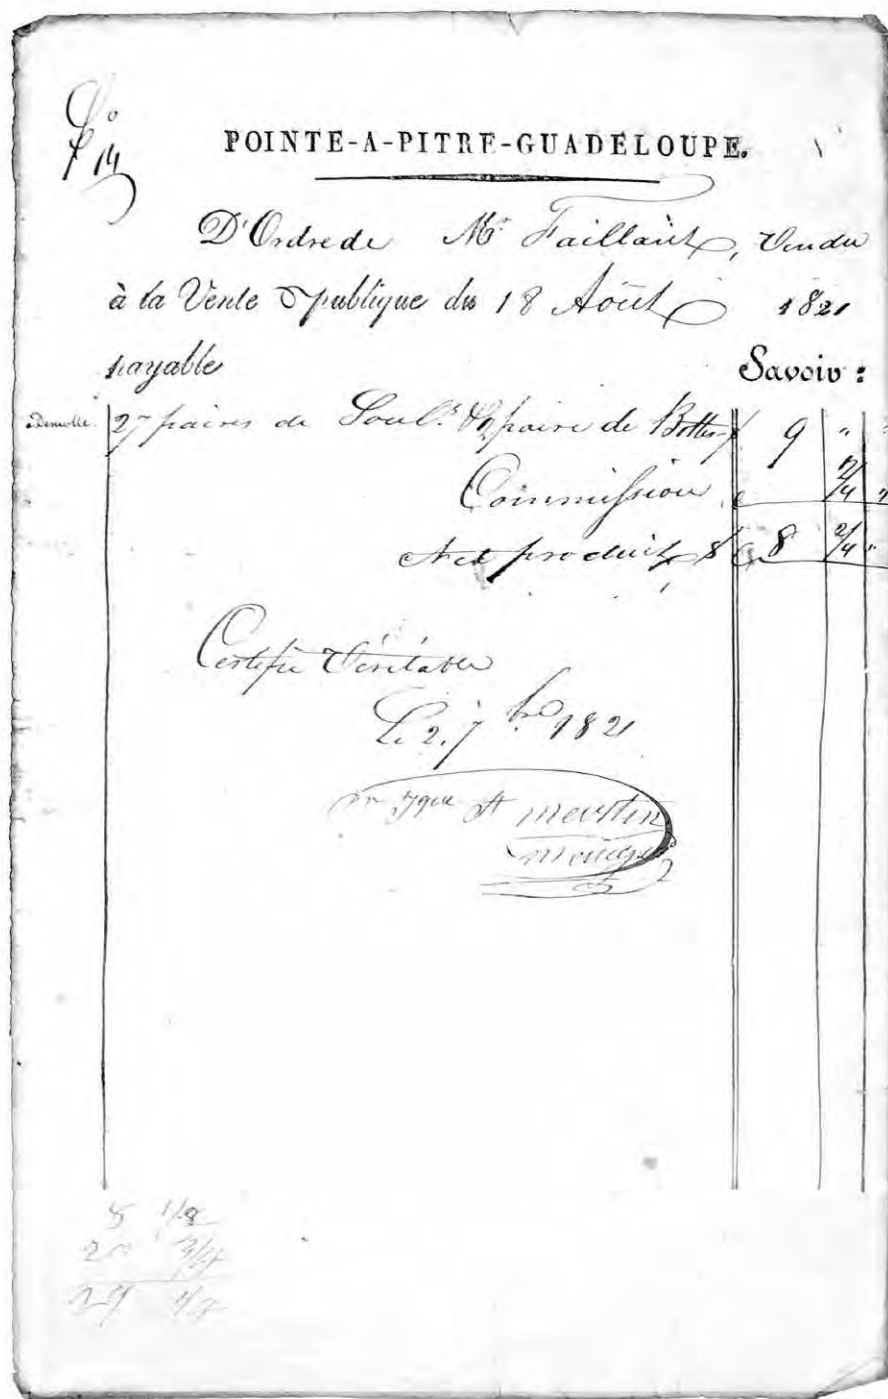 No 14
POINTE-A-PITRE-GUADELOUPE.
D'Ordre de Mr. Faillant, Vendu
à la Vente Publique du 18 Août 1821
payable Savoir :
27 paires de Soul.s & 1 paire de Bottes 9 " "
Commission 2/4 "
Net produit 8 2/4 "
Certifié Véritable
Le 2. 7bre 1821
St mertin
8 1/2
20 3/4
29 1/4